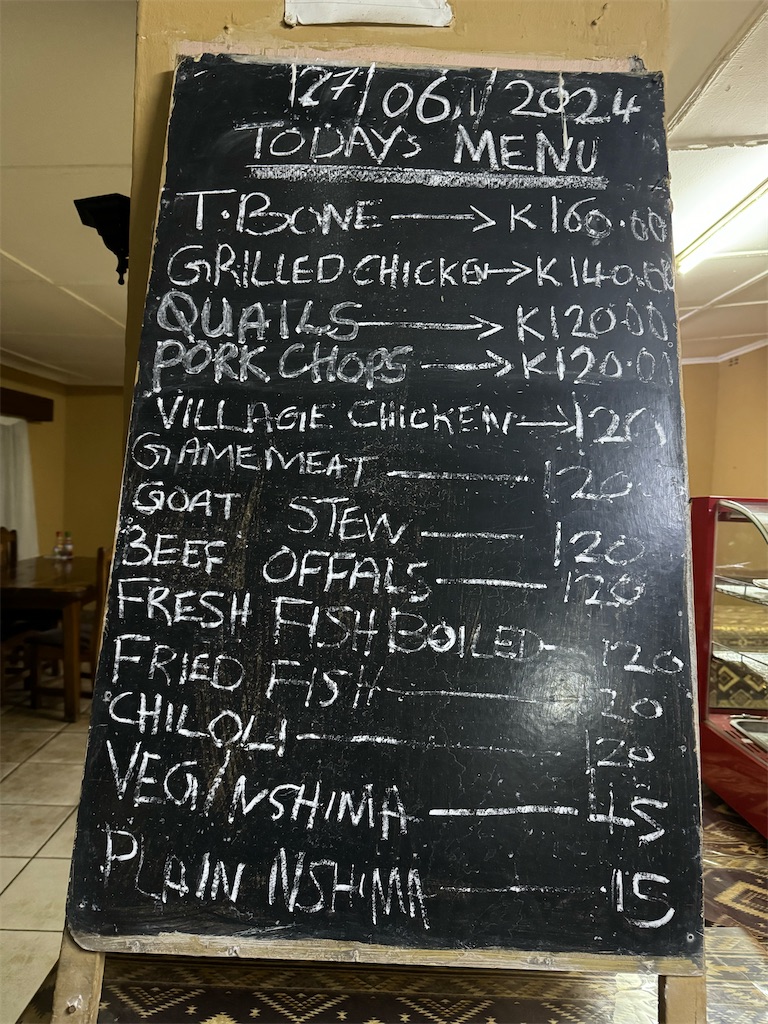 27/06/2024
TODAYS MENU
T.BONE → K160.00
GRILLED CHICKEN → K140.00
QUAILS → K120.00
PORK CHOPS → K120.00
VILLAGE CHICKEN → 120
GAMEMEAT — 120
GOAT STEW — 120
BEEF OFFALS — 120
FRESH FISH BOILED — 120
FRIED FISH — 20
CHILOLI — 120
VEG/NSHIMA — 45
PLAIN NSHIMA — 15